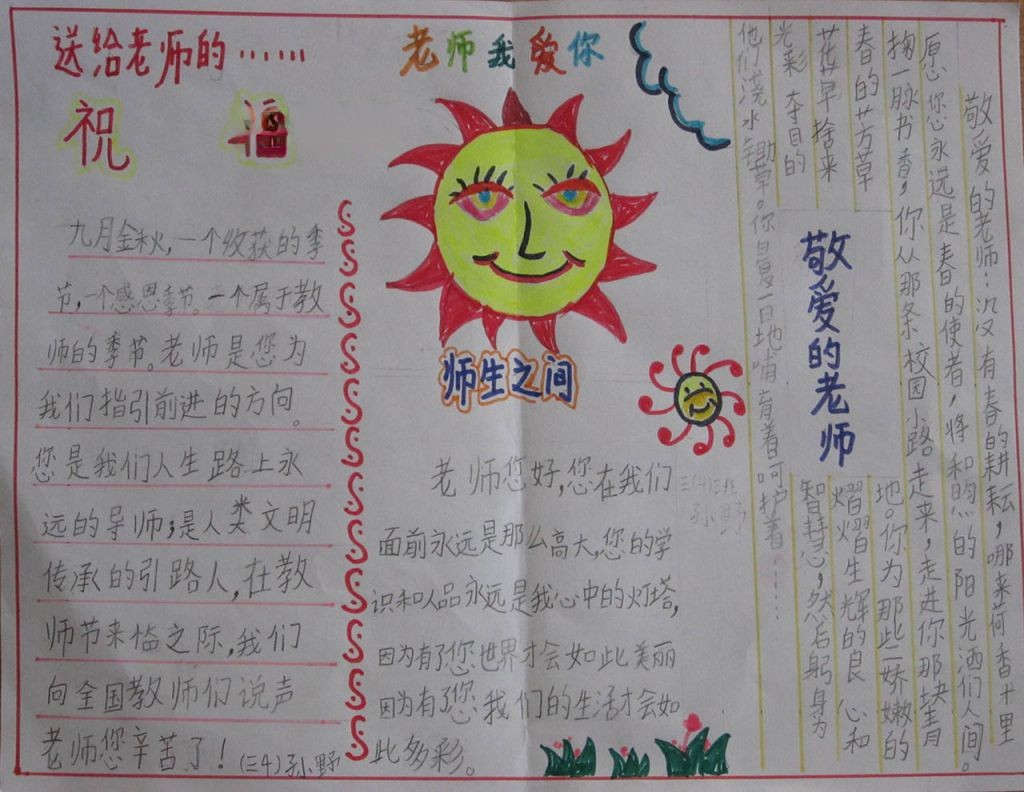 送给老师的……
祝福
九月金秋，一个收获的季
节，一个感恩季节。一个属于教
师的季节。老师是您为
我们指引前进的方向。
您是我们人生路上永
远的导师；是人类文明
传承的引路人，在教
师节来临之际，我们
向全国教师们说声
老师您辛苦了！(三4)孙野
老师我爱你
师生之间
老师您好，您在我们
面前永远是那么高大，您的学
识和人品永远是我心中的灯塔，
因为有了您世界才会如此美丽
因为有了您我们的生活才会如
此多彩。
三(4)班
孙野
敬爱的老师
敬爱的老师：没有春的耕耘，哪来荷香十里
愿您永远是春的使者，将和煦的阳光洒们人间。
掬一脉书香，你从那条校园小路走来，走进你那块青
春的芳草
地。你为那些娇嫩的
花草捨来
熠熠生辉的良心和
光彩夺目的
智慧，然后躬身为
他们浇水锄草。你日复一日地哺育着呵护着……